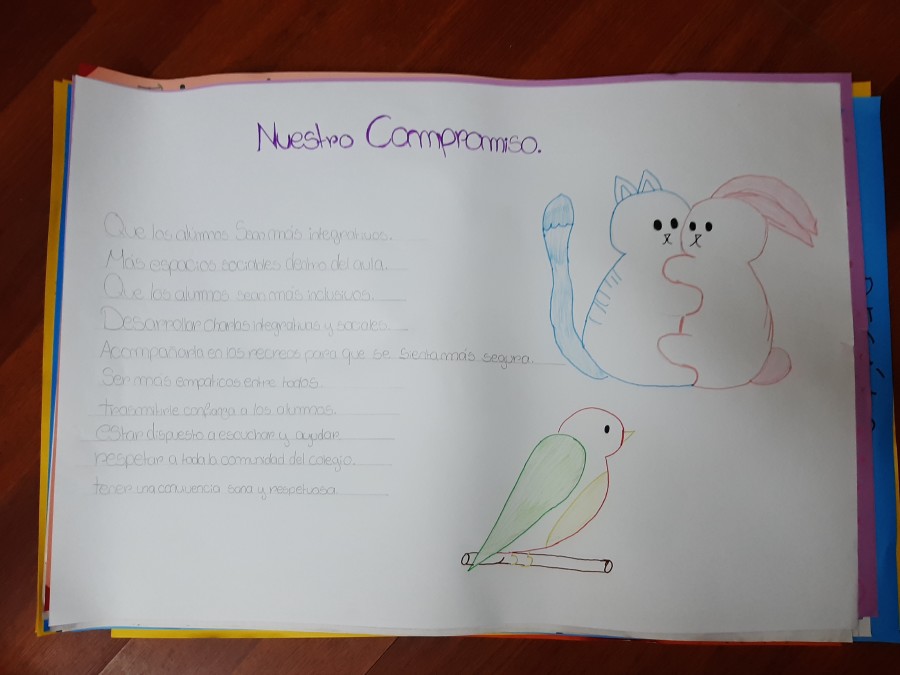 Nuestro Compromiso.
Que los alumnos Sean más integrativos.
Más espacios sociales dentro del aula.
Que los alumnos sean más inclusivos.
Desarrollar charlas integrativas y sociales.
Acompañarla en los recreos para que se sienta más segura.
Ser más empáticos entre todos.
transmitirle confianza a los alumnos.
estar dispuesto a escuchar y ayudar.
respetar a toda la comunidad del colegio.
tener una convivencia sana y respetuosa.